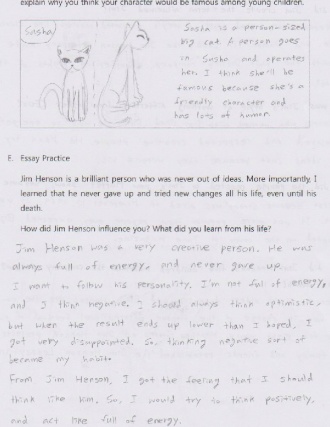 explain why you think your character would be famous among young children.
Sasha
Sasha is a person-sized
big cat. A person goes
in Sasha and operates
her. I think she'll be
famous because she's a
friendly character and
has lots of humor.
E. Essay Practice
Jim Henson is a brilliant person who was never out of ideas. More importantly, I
learned that he never gave up and tried new changes all his life, even until his
death.
How did Jim Henson influence you? What did you learn from his life?
Jim Henson was a very creative person. He was
always full of energy, and never gave up.
I want to follow his personality. I'm not ful of energy,
and I think negative. I should always think optimistic,
but when the result ends up lower than I hoped, I
got very disappointed. So, thinking negative sort of
became my habit.
From Jim Henson, I got the feeling that I should
think like him. So, I would try to think positively,
and act like full of energy.